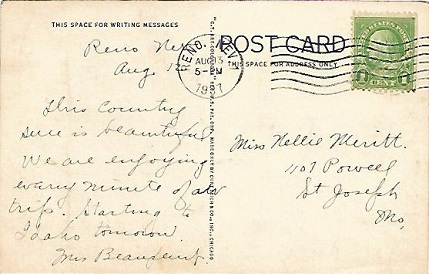 THIS SPACE FOR WRITING MESSAGES
POST CARD
THIS SPACE FOR ADDRESS ONLY.
RENO, NEV.
AUG 13
5 - PM
1937
Reno Nev
Aug. 12
This country
sure is beautiful
We are enjoying
every minute of our
trip. Starting to
Idaho tomorow.
Mrs
Miss Nellie Meritt.
1107 Powell
St Joseph
Mo,